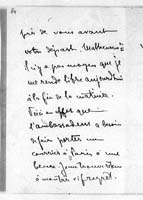 près de vous avant
votre départ. Malheureusemt
il n'y a pas moyen que je
me rende libre aujourd'hui
à la fin de la matinée.
Voici en effet que
l'ambassadeur a besoin
de faire porter un
courrier à Paris à une
heure